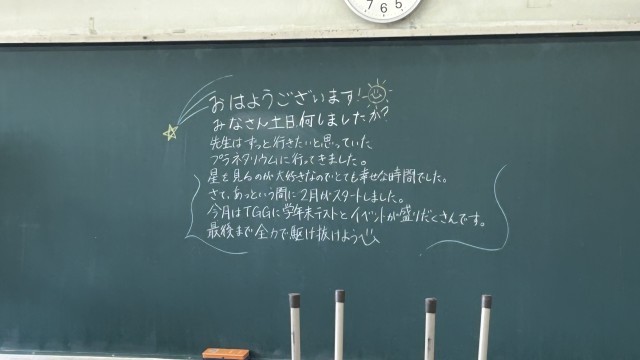 7 6 5
おはようございます!
みなさん土日何しましたか?
先生はずっと行きたいと思っていた
プラネタリウムに行ってきました。
星を見るのが大好きなのでとても幸せな時間でした。
さて、あっという間に2月がスタートしました。
今月はTGGに学年末テストとイベントが盛りだくさんです。
最後まで全力で駆け抜けよう